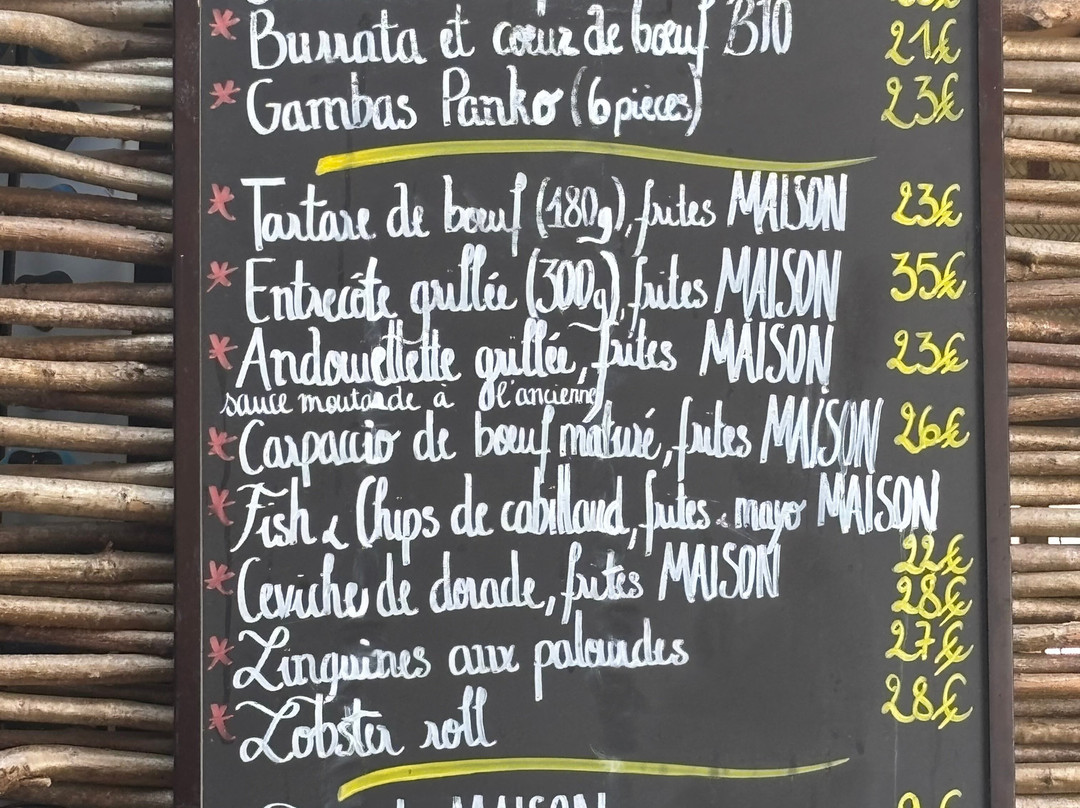 * Burrata et cœur de bœuf BIO 21€
* Gambas Panko (6 pièces) 23€
* Tartare de bœuf (180g), frites MAISON 23€
* Entrecôte grillée (300g), frites MAISON 35€
* Andouillette grillée, frites MAISON 23€
sauce moutarde à l'ancienne
* Carpaccio de bœuf maturé, frites MAISON 26€
* Fish & Chips de cabillaud, frites & mayo MAISON
22€
* Ceviche de dorade, frites MAISON 28€
* Linguines aux palourdes 27€
* Lobster roll 28€
MAISON